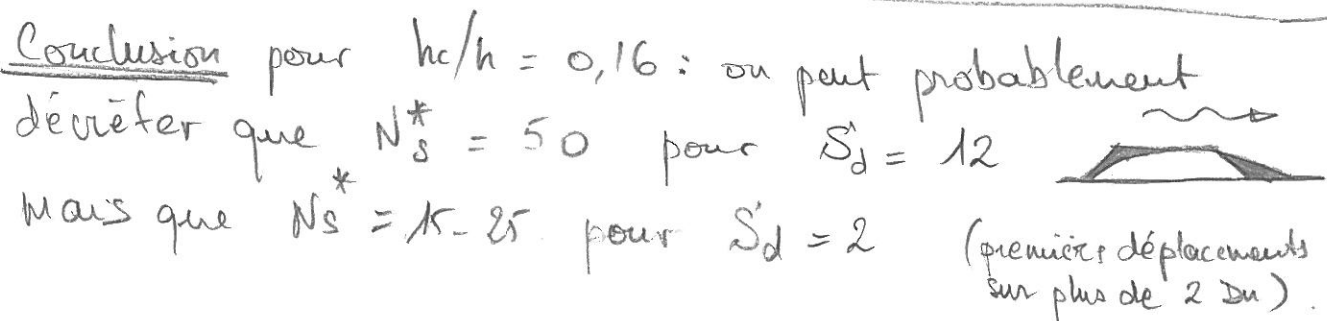 Conclusion pour hc/h = 0,16 : on peut probablement
décréter que Ns* = 50 pour Sd = 12
mais que Ns* = 15-25 pour Sd = 2 (premiers déplacements
sur plus de 2 Dn).